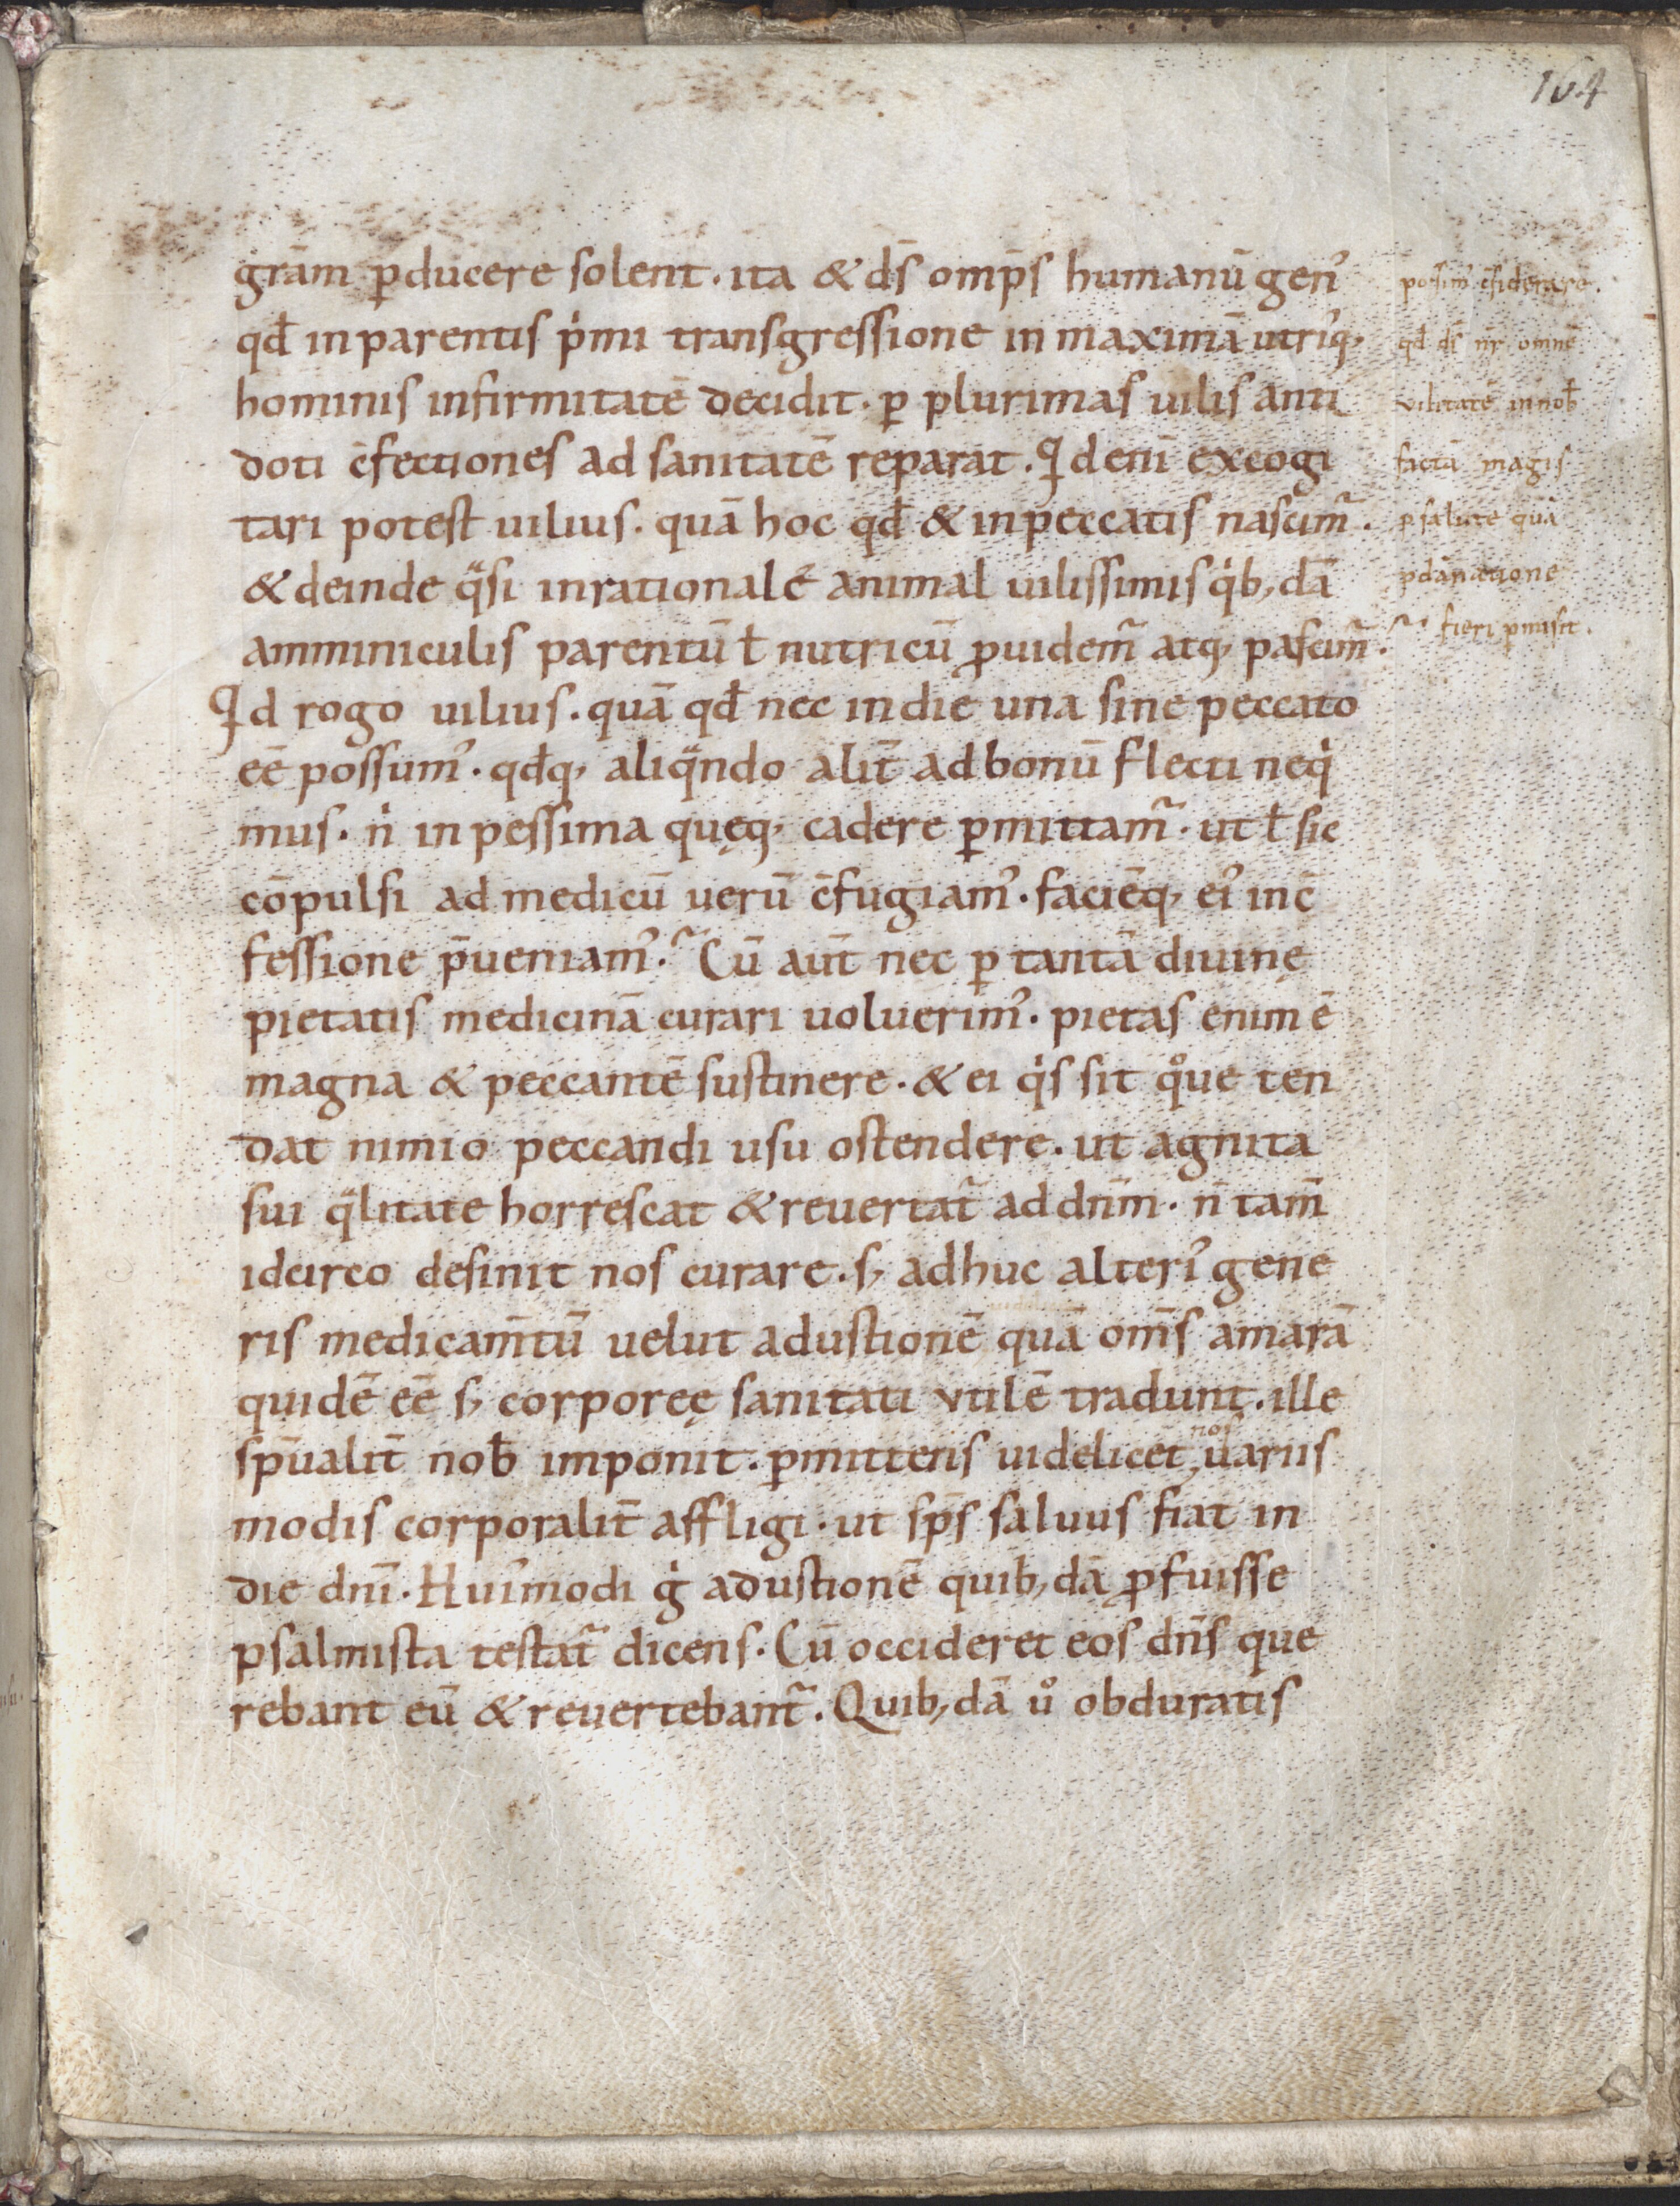 164
grām ꝑducere solent. ita & d̄s omp̄s humanū gen᾽
qd̄ inparentis pⁱmi transgressione in maximā utriꝰq;
hominis infirmitatē decidit. ꝑ plurimas uilis anti
doti c̄fectiones ad sanitatē reparat. Qⁱd eni̅ excogi
tari potest uilius. quā hoc qd̄ & inpeccatis nascim̃.
& deinde qᵃsi inrationalē animal uilissimis qⁱb;dā
amminiculis parentū ł nutricū ꝓuidem̃ atq; pascim̃.
Qⁱd rogo uilius. quā qd̄ nec in die una sine peccato
eē possum᾽. qd̄q; aliqᵃndo alit̄ ad bonū flecti neqⁱ
mus. nⁱ in pessima quęq; cadere ꝑmittam̃. ut ł sic
cōpulsi ad medicū uerū c̄fugiam᾽. faciēq; ei᾽ in c̄
fessione p̄ueniam᾽. Cū aut̄ nec ꝑ tantā diuinę
pietatis medicinā curari uoluerim᾽. pietas enim ē
magna & peccantē sustinere. & ei qⁱs sit qᵒue ten
dat nimio peccandi usu ostendere. ut agnita
sui qᵃlitate horrescat & reuertat̃ ad dn̄m. n̄ tam̄
idcirco desinit nos curare. s; adhuc alteri᾽ gene
ris medicam̄tū uelut adustionē quā om̄s amarā
quidē eē s; corporeę sanitati vtilē tradunt. ille
sp̄ualit̄ nob̄ imponit. ꝑmittens uidelicet nos uariis
modis corporalit̄ affligi. ut sp̄s saluus fiat in
die dn̄i. Hui᾽modi gⁱ adustionē quib;dā ꝓfuisse
psalmista testat̃ dicens. Cū occideret eos dn̄s que
rebant eū & reuertebant̃. Quib;dā uᵒ obduratis
possim᾽ c̄siderare.
qd̄ d̄s nr̄ omnē
vilitatē in nob̄
factā magis
ꝓ salute quā
ꝓ dānatione
fieri ꝑmisit.